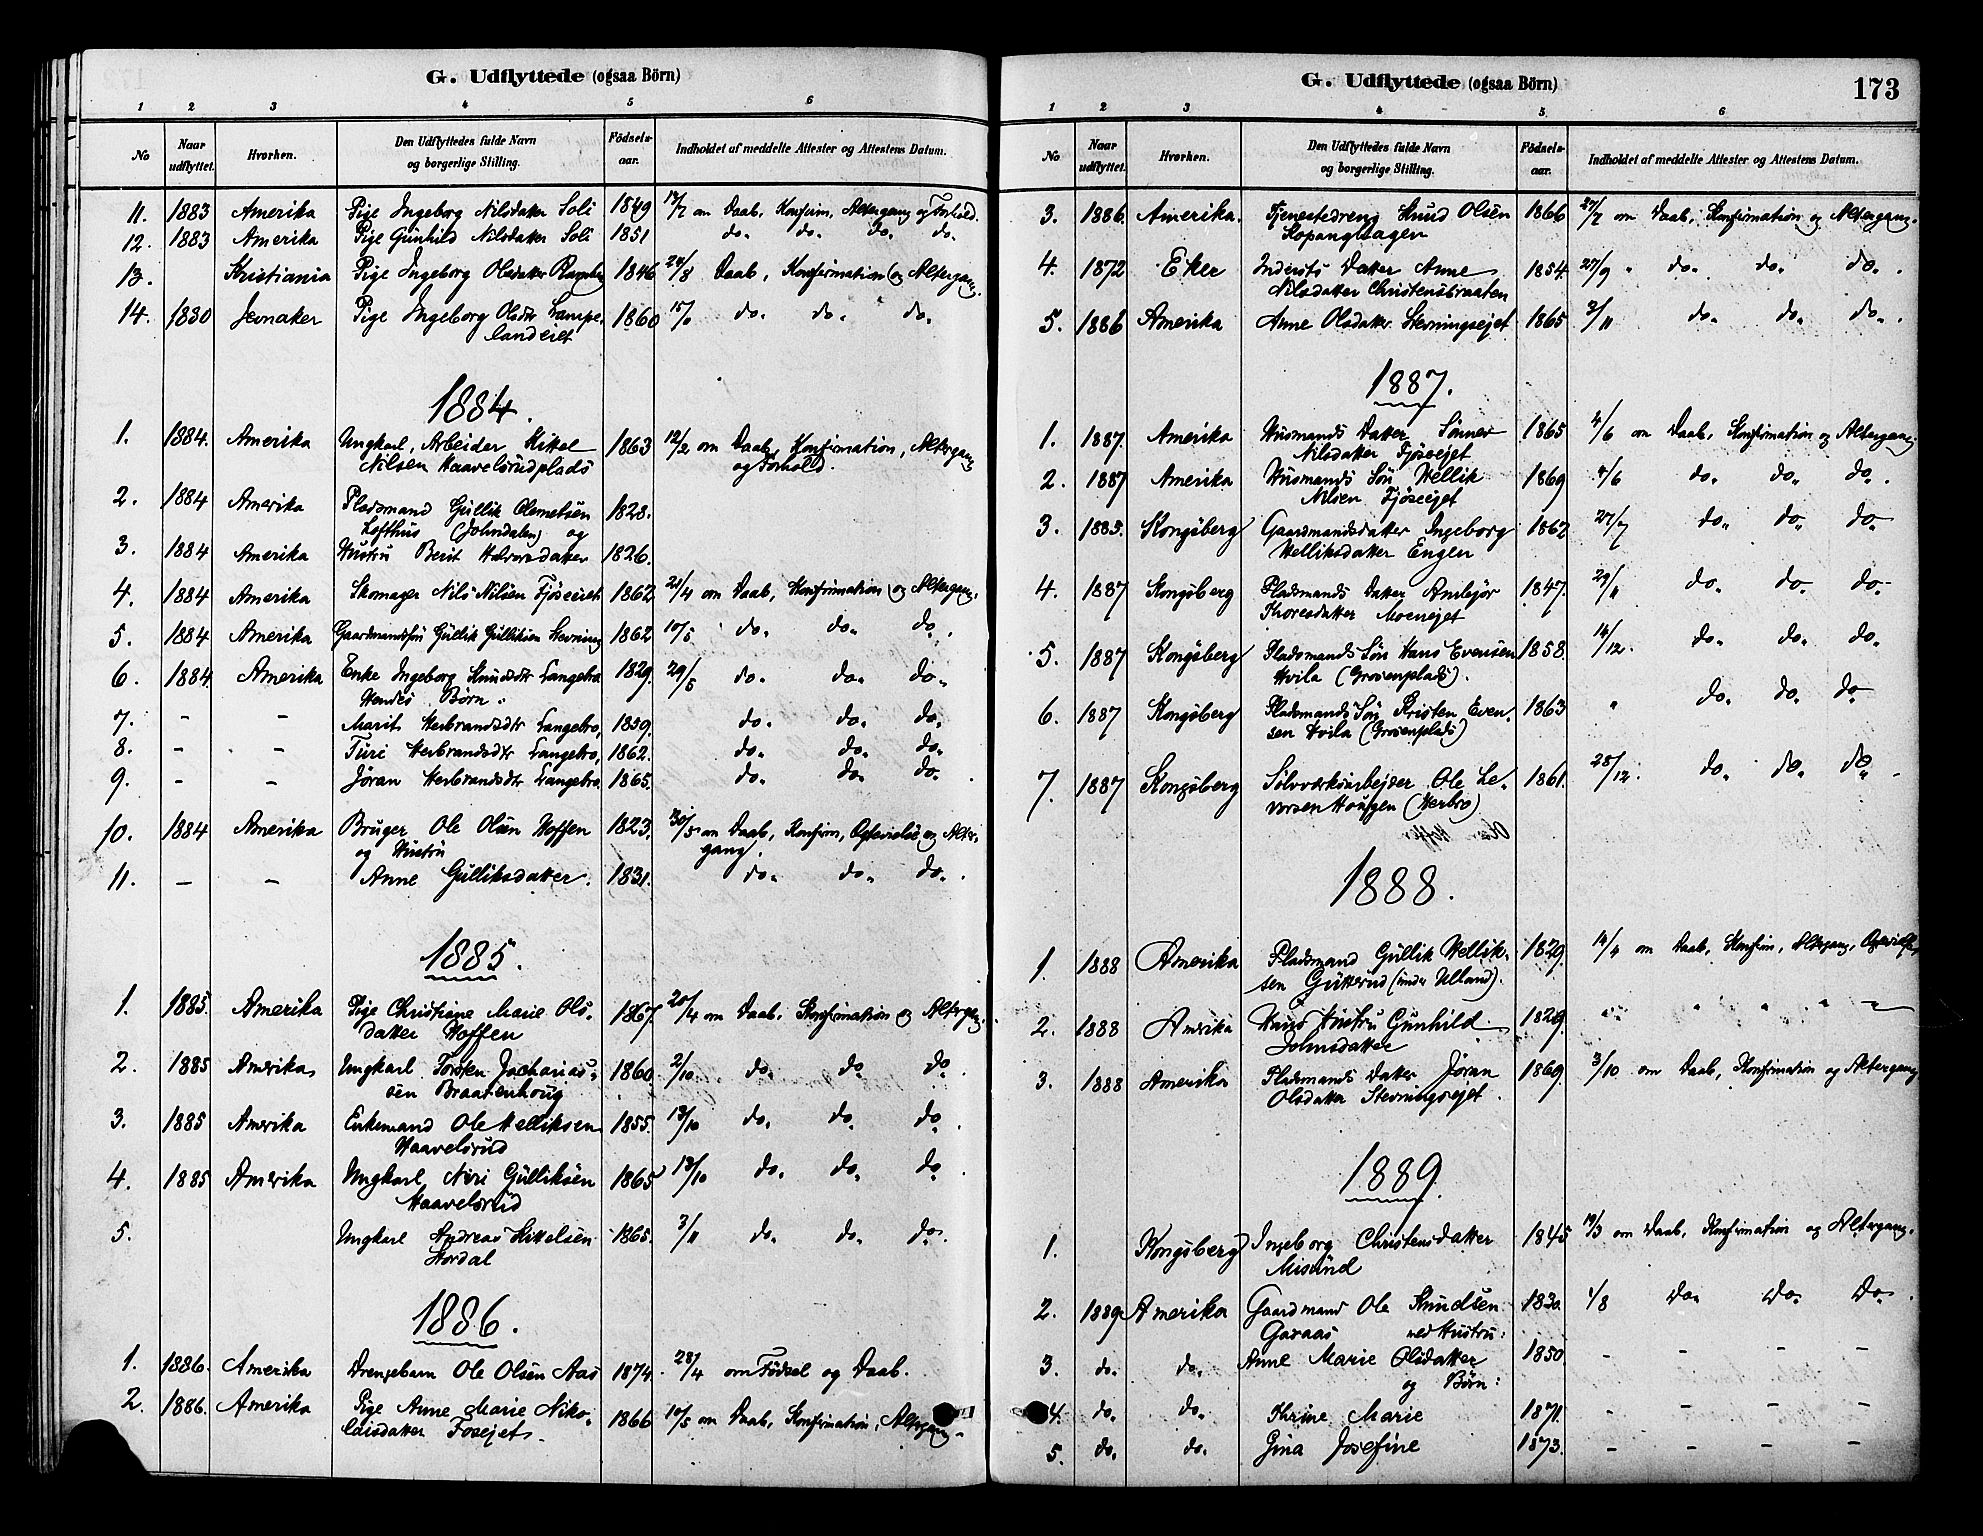 G. Udflyttede (ogsaa Börn)
1 2 3 4 5 6
No Naar udflyttet. Hvorhen. Den Udflyttedes fulde Navn og borgerlige Stilling. Födsels-aar. Indholdet af meddelte Attester og Attestens Datum.
11. 1883 Amerika Pige Ingeborg Nilsdatter Soli 1849 17/7 om Daab, Konfirm, Altergang og Forhold.
12. 1883 Amerika Pige Gunhild Nilsdatter Soli 1851 do. do. do. do.
13. Kristiania Pige Ingeborg Olsdatter 1846 24/8 Daab, Konfirmation og Altergang.
14. 1880 Jevnaker Pige Ingeborg Olsdtr Lampe- 1860 do. do. do.
landeiet
1884.
1. 1884. Amerika Ungkarl, Arbeider Kittel 1863 12/2 om Daab, Konfirmation, Altergang
Nilsen Haavelsrudplads og Forhold.
2. 1884 Amerika Pladsmand Gullik Clemetsen 1828.
Lofthus (Johndalen) og
3. 1884 Amerika Hustru Berit Halvorsdatter 1826.
4. 1884 Amerika Skomager Nils Nilsen Fjöseiet 1862 21/4 om Daab, Konfirmation og Altergang.
5. 1884 Amerika Gaardmandssön Gullik Gulliksen Stevning 1862 10/5 do. do. do.
6. 1884. Amerika Enke Ingeborg Knudsdtr Langebro 1829. 29/5 do. do. do.
Hendes Börn:
7. - - Marit Herbrandsdtr Langebro, 1859. do. do. do.
8. - - Turi Herbrandsdtr Langebro, 1862. do. do. do.
9. - - Jöran Herbrandsdtr Langebro. 1865. do. do. do.
10. 1884 Amerika Bruger Ole Olsen Hoffen 1823. 30/5 om Daab, Konfirm, Ægtevielse og Alter-
og Hustru gang.
11. - - Anne Gulliksdatter. 1831. do. do. do.
1885.
1. 1885. Amerika Pige Christiane Marie Ols- 1867. 20/4 om Daab, Konfirmation og Altergang.
datter Hoffen
2. 1885 Amerika Ungkarl Torsten Zacharias- 1860 2/10 do. do. do.
sen Braatenhoug
3. 1885 Amerika Enkemand Ole Helliksen 1855. 13/10 do. do. do.
Haavelsrud
4. 1885 Amerika Ungkarl Neri Gulliksen 1865 13/10 do. do. do.
Haavelsrud
5. Ungkarl Andreas Kittelsen 1865. 3/11 do. do. do.
Stordal
1886.
1. 1886. Amerika Drengebarn Ole Olsen Aas 1874. 28/4 om Födsel og Daab.
2. 1886. Amerika Pige Anne Marie Niko- 1866 10/5 om Daab, Konfirmation, Altergang.
laisdatter Fosejet.
G. Udflyttede (ogsaa Börn) 173
1 2 3 4 5 6
No Naar udflyttet. Hvorhen. Den Udflyttedes fulde Navn og borgerlige Stilling. Födsels-aar. Indholdet af meddelte Attester og Attestens Datum.
3. 1886. Amerika. Tjenestedreng Knud Olsen 1866 27/7 om Daab, Konfirmation og Altergang.
Kopanghagen
4. 1872 Eker Indersts Datter Anne 1854 27/9 " do. do. do.
Nilsdatter Christensbraaten
5. 1886 Amerika Anne Olsdatter Stevningsejet 1865 3/11 do. do. do.
1887.
1. 1887. Amerika Husmands Datter Sönnev 1865 4/6 om Daab, Konfirmation og Altergang
Nilsdatter Fjöseejet
2. 1887 Amerika Husmands Sön Hellik 1869 4/6 do. do. do.
Nilsen Fjöseejet
3. 1883. Kongsberg Gaardmandsdatter Ingeborg 1862 27/7 do. do. do
Helliksdatter Engen
4. 1887 Kongsberg Pladsmands Datter Ambjör 1847. 29/11 do. do. do.
Thoresdatter Moenejet
5. 1887 Kongsberg Pladsmands Sön Hans Evensen 1858. 14/12. do. do. do.
Hvila (Grosenplads).
6. 1887 Kongsberg Pladsmands Sön Kristen Even- 1863 " do. do. do
sen Hvila (Grosenplads)
7. 1887 Kongsberg Sölvværksarbejder Ole Le- 1861. 28/12. do. do. do.
vorsen Hougen (Herbro)
1888.
1. 1888 Amerika Pladsmand Gullik Hellik- 1829. 14/4 om Daab, Konfirm, Altergang,
sen Gutterud (under Ulland).
2. 1888 Amerika Hans Hustru Gunhild 1829. " " " "
Johnsdatter
3. 1888 Amerika Pladsmands Datter Jöran 1869. 3/10 om Daab, Konfirmation og Altergang
Olsdatter Stevningsejet.
1889.
1. Kongsberg Ingeborg Christensdatter 1845 19/3 om Daab, Konfirmation og Altergang.
Misund
2. 1889 Amerika Gaardmand Ole Knudsen 1830. 1/8 do. do. do.
Garaas med Hustru:
3. do. do. Anne Marie Olsdatter 1850. - - - -
og Börn:
4. do. do. Thrine Marie 1871. - - - -
5. do. do. Gina Josefine 1873. - - - -